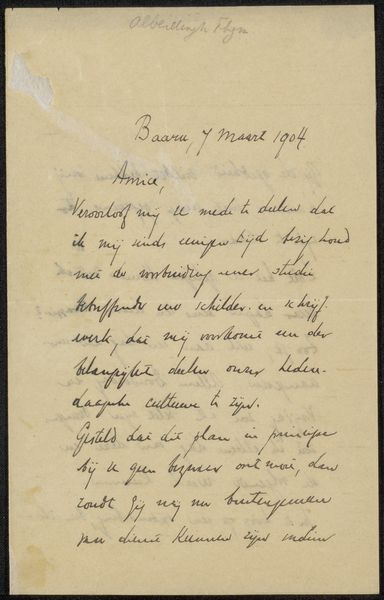 Alberdingk Thijm
Baarn, 7 Maart 1904
Amice,
Veroorloof mij U mede te deelen dat
ik mij sinds eenigen tijd bezig houd
met de voorbereiding eener studie
betreffende uw schilder- en schrijf-
werk, dat mij voorkomt een der
belangrijkste deelen onzer heden-
daagsche cultuur te zijn.
Gesteld dat dit plan in principe
bij U geen bezwaar ontmoet, dan
zoudt Gij mij nu buitengemeen
van dienst kunnen zijn indien